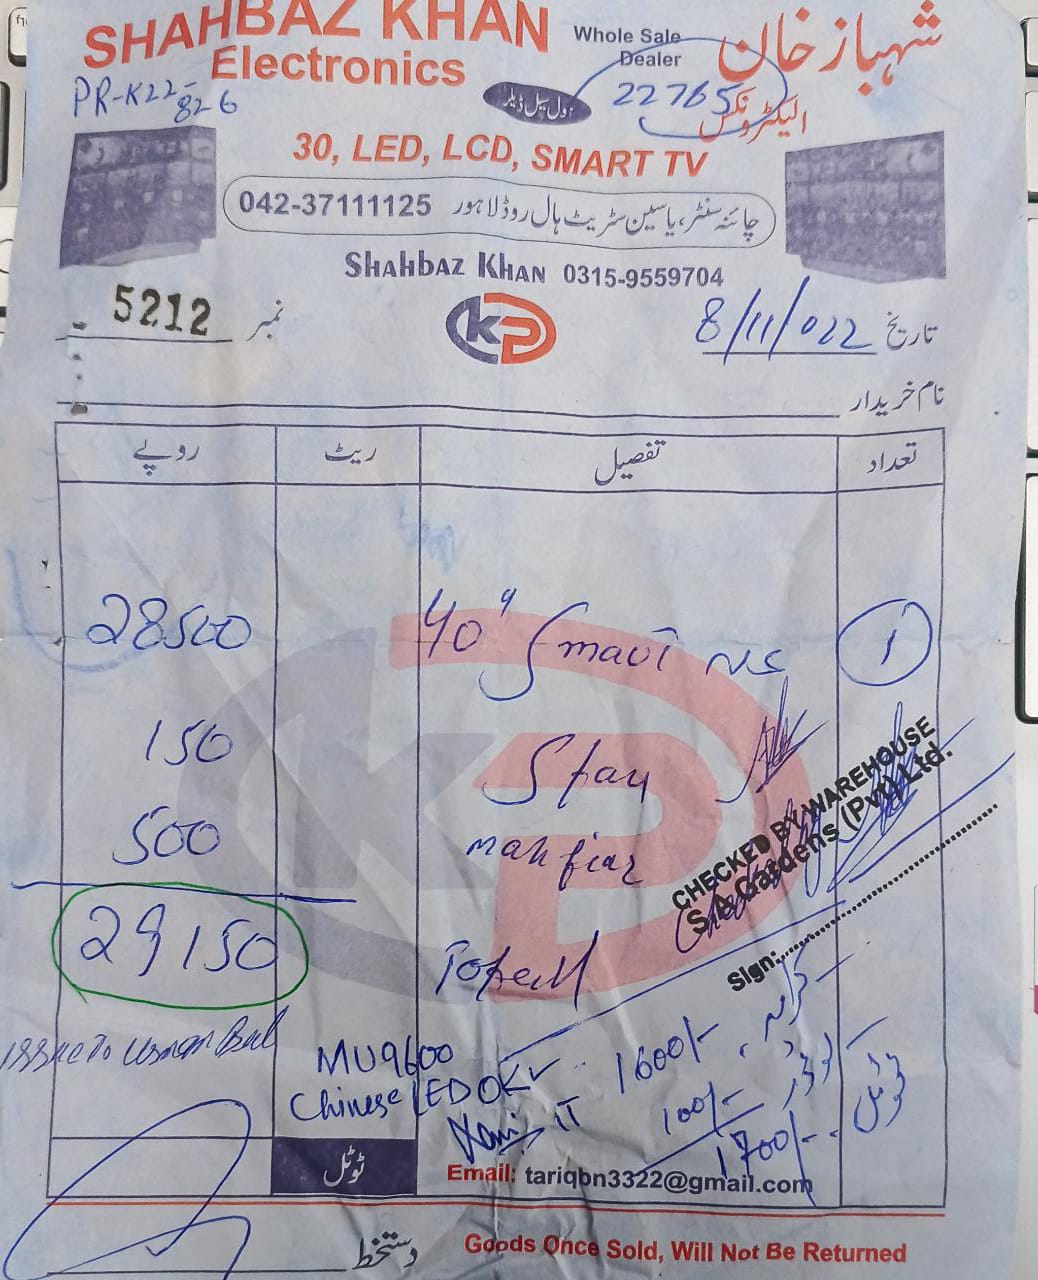 SHAHBAZ KHAN
Electronics
Whole Sale
Dealer
شہباز خان
الیکٹرونکس
PR-K22-
826
ہول سیل ڈیلر
22765
30, LED, LCD, SMART TV
042-37111125 چائنہ سنٹر، یاسین سٹریٹ ہال روڈ لاہور
SHAHBAZ KHAN 0315-9559704
5212 نمبر
KP
8/11/022 تاریخ
نام خریدار
تعداد تفصیل ریٹ روپے
28500 40" 1
150
500
29150
CHECKED BY WAREHOUSE
S.A Gardens (Pvt) Ltd.
Sign:
Issue To Usman
MU9600
Chinese LED OK
IT
1600/-
100/-
1700/-
ٹوٹل
Email: tariqbn3322@gmail.com
دستخط
Goods Once Sold, Will Not Be Returned